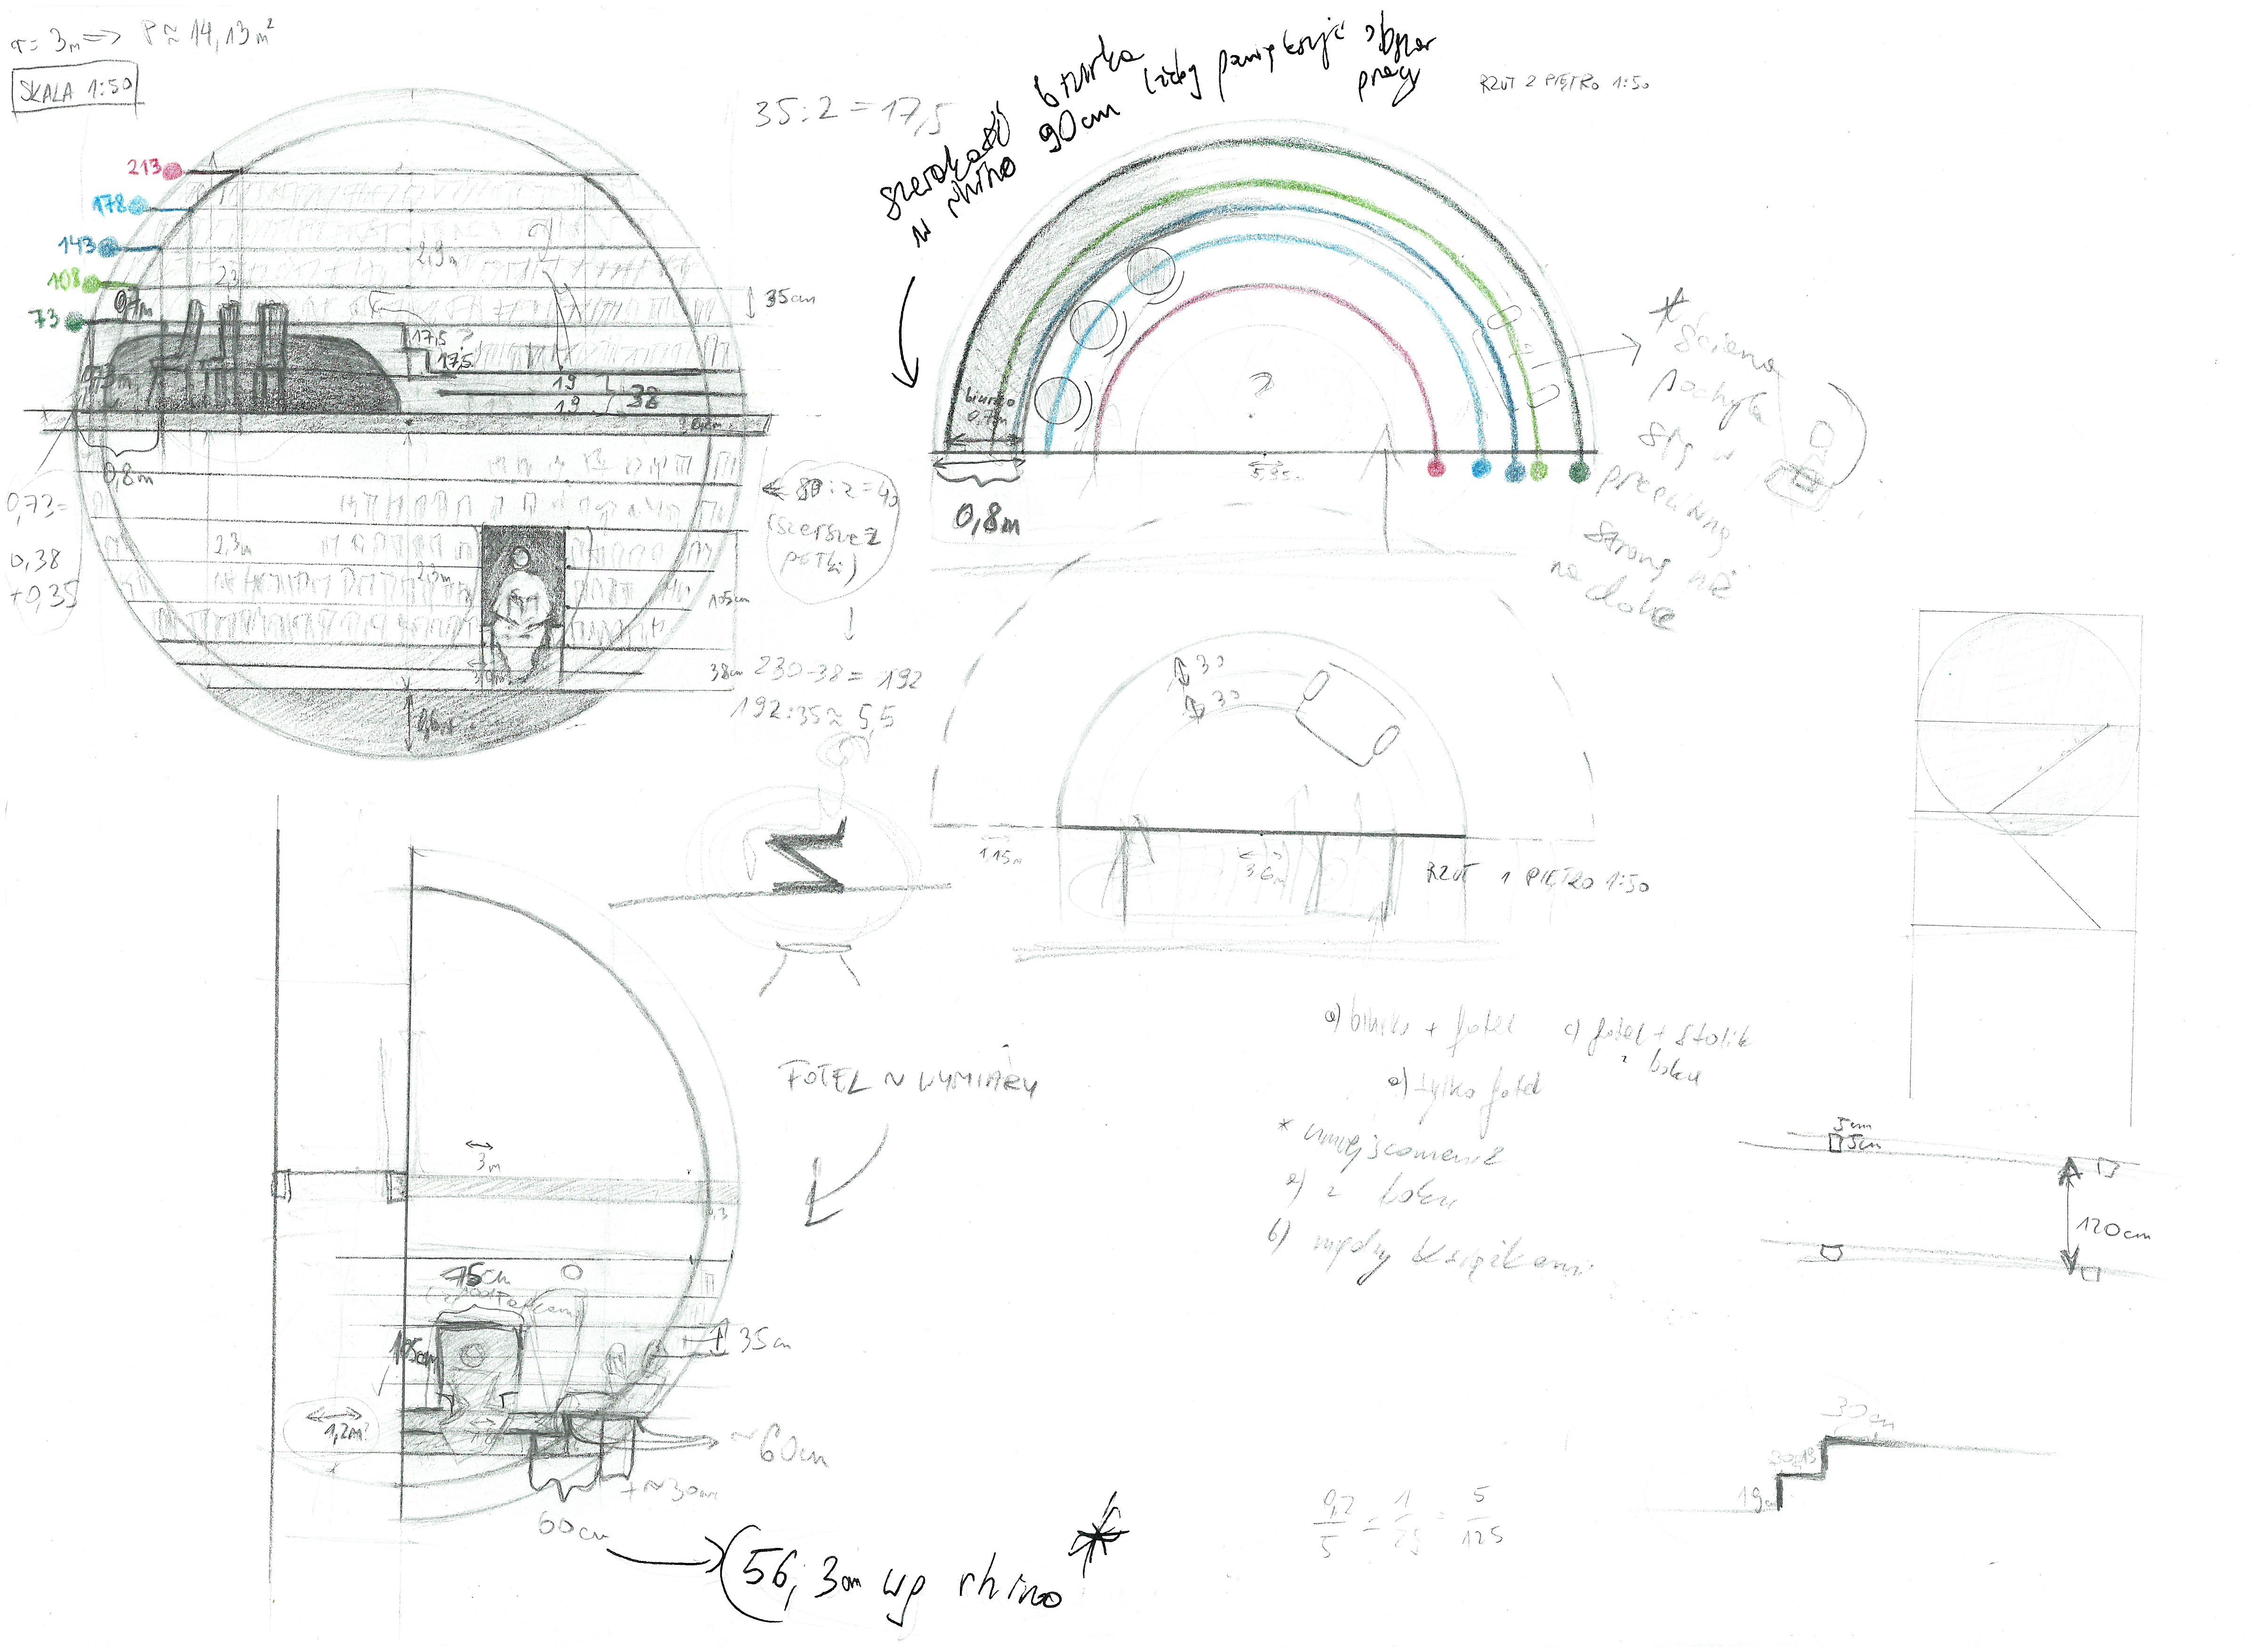 r= 3m => P ≈ 14,13m²
SKALA 1:50
213
178
143
108
73
2,9m
2,3
0,7m
35cm
17,5 ?
17,5
19
19
38
0,8m
0,73=
0,38
+0,35
2,3m
2,3m
105cm
38cm
35:2=17,5
80:2=40
(szersze 2
półki)
230-38=192
192:35≈5,5
szerokość biurka
w rhino 90cm
żeby powiększyć obszar
pracy
RZUT 2 PIĘTRO 1:50
biurko
0,7m
0,8m
?
5,35m
* ściana
pochyla
się w
przeciwną
stronę niż
na dole
30
30
1,15m
3,6m
RZUT 1 PIĘTRO 1:50
3m
75cm
105cm
35cm
1,2m?
~60cm
+~30cm
60cm
(56,3cm wg rhino *
FOTEL ~ WYMIARY
a) biurko + fotel
c) fotel + stolik
z boku
a) tylko fotel
* umiejscowienie
a) z boku
b) między książkami
5cm
5cm
120cm
30cm
19cm
0,2/5 = 1/25 = 5/125